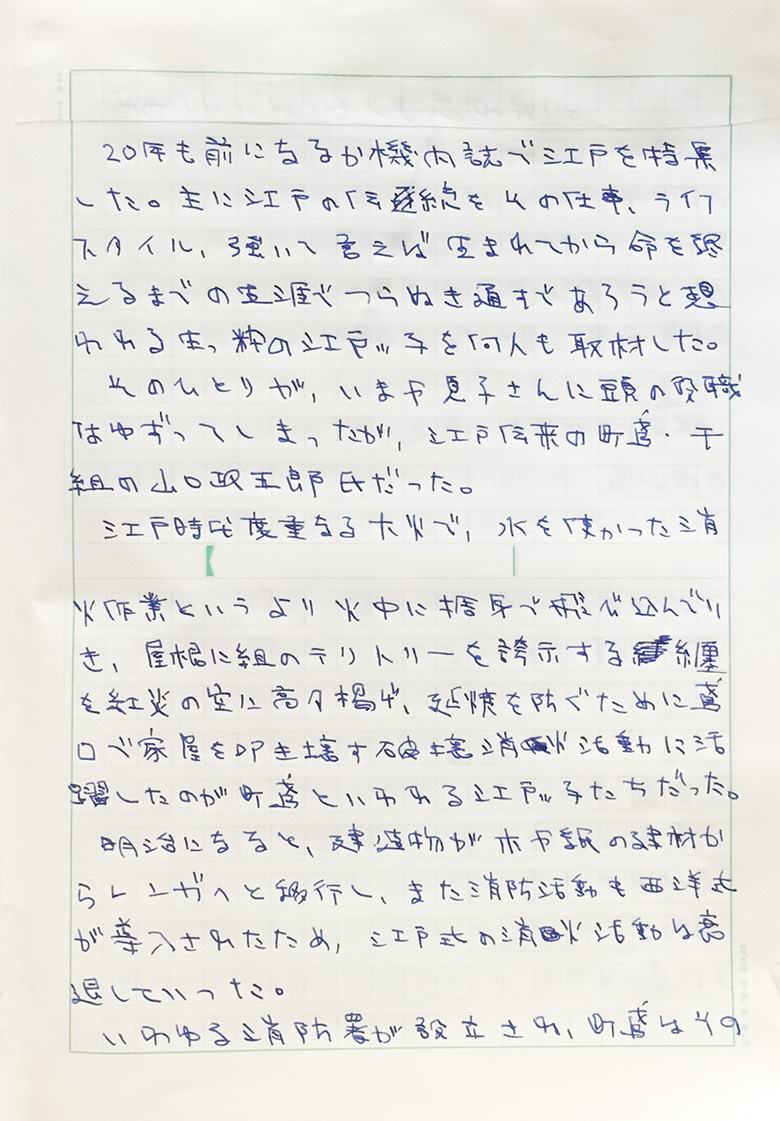 20年も前になるか機内誌で江戸を特集
した。主に江戸の伝継続をその仕事、ライフ
スタイル、強いて言えば生まれてから命を終
えるまでの生涯でつらぬき通すであろうと想
われる生っ粋の江戸ッ子を何人も取材した。
そのひとりが、いまや息子さんに頭の役職
はゆずってしまったが、江戸伝来の町鳶・千
組の山口政五郎氏だった。
江戸時代度重なる大火で、水を使かった消
火作業というより火中に捨身で飛び込んでい
き、屋根に組のテリトリーを誇示する纏
を紅災の空に高々揚げ、延焼を防ぐために鳶
口で家屋を叩き壊す破壊消火活動に活
躍したのが町鳶といわれる江戸ッ子たちだった。
明治になると、建造物が木や紙の建材か
らレンガへと移行し、また消防活動も西洋式
が導入されたため、江戸式の消火活動は衰
退していった。
いわゆる消防署が設立され、町鳶はその